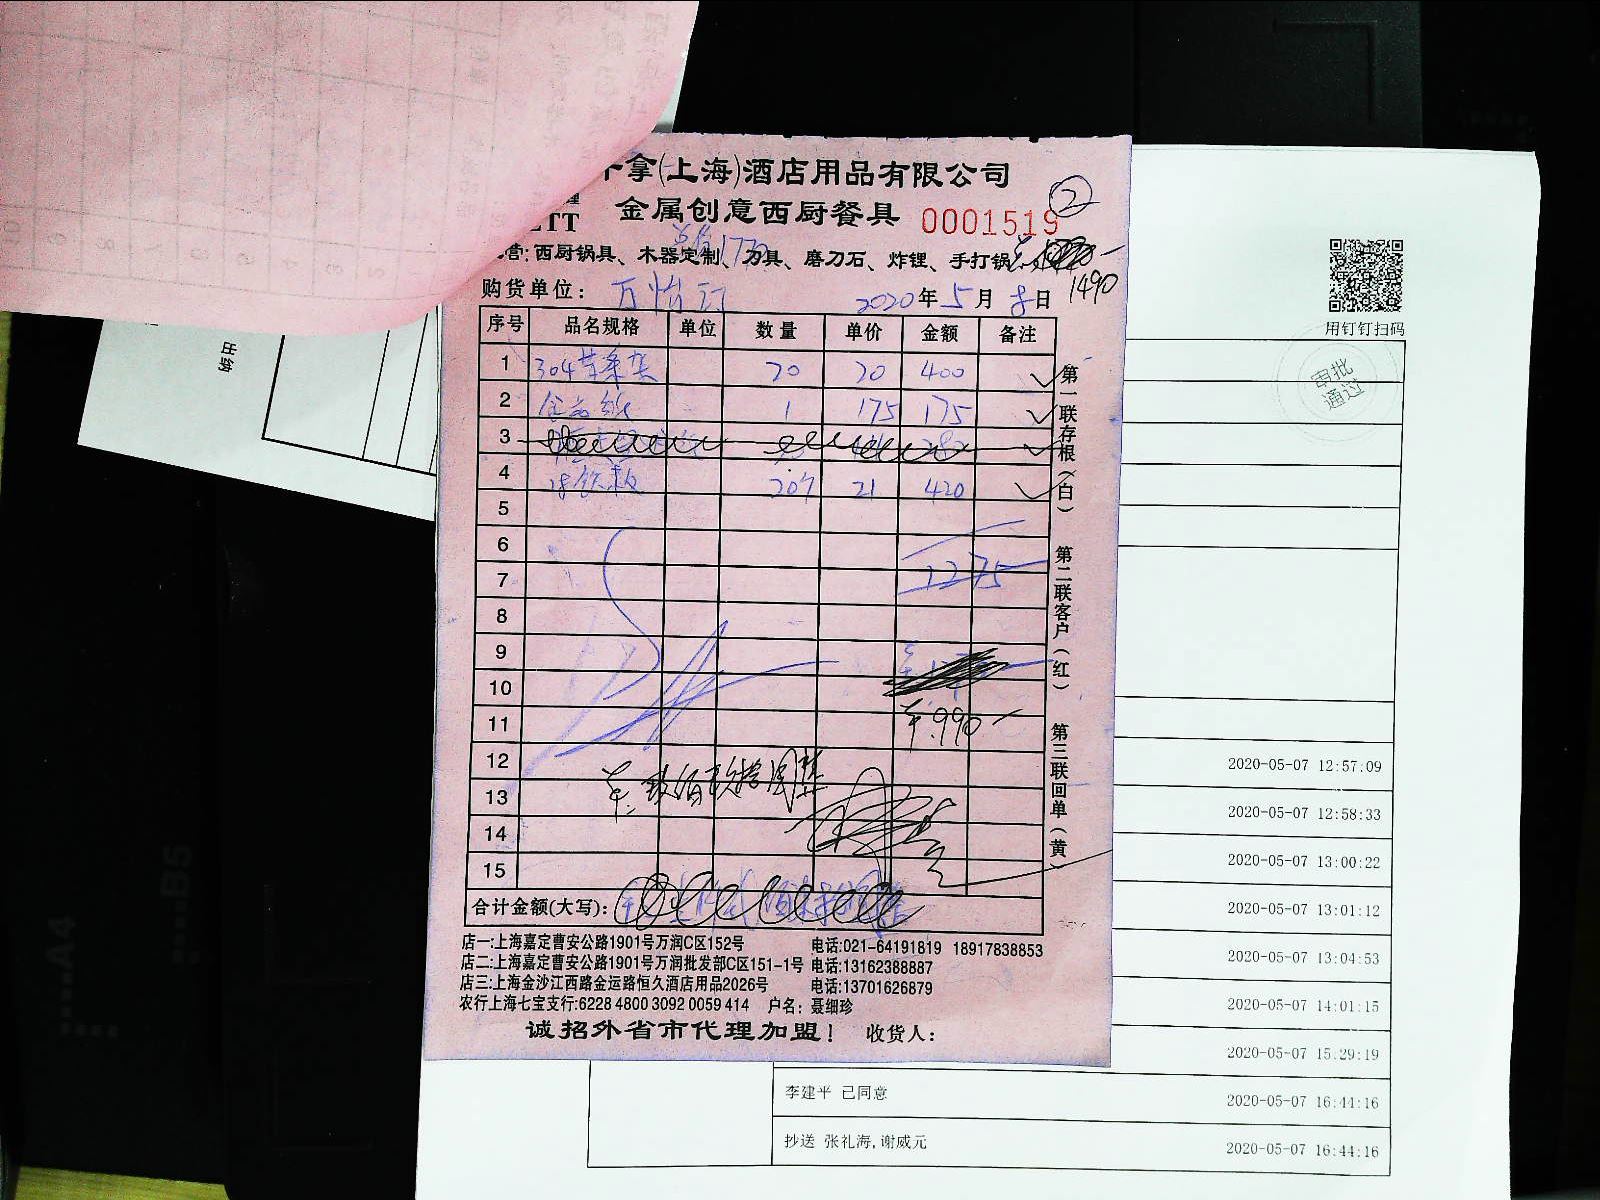 拿(上海)酒店用品有限公司
金属创意西厨餐具 0001519 ②
ETT
营:西厨锅具、木器定制、刀具、磨刀石、炸锂、手打锅
1490
购货单位: 万怡订 2020年5月8日
序号 品名规格 单位 数量 单价 金额 备注
1 304 20 20 400
2 1 175 175
3
4 20个 21 420
5
6
7 1275
8
9
10
11 990
12
13
14
15
合计金额(大写):
第一联存根(白) 第二联客户(红) 第三联回单(黄)
店一:上海嘉定曹安公路1901号万润C区152号 电话:021-64191819 18917838853
店二:上海嘉定曹安公路1901号万润批发部C区151-1号 电话:13162388887
店三:上海金沙江西路金运路恒久酒店用品2026号 电话:13701626879
农行上海七宝支行:6228 4800 3092 0059 414 户名: 聂细珍
诚招外省市代理加盟! 收货人:
出纳
用钉钉扫码
审批
通过
2020-05-07 12:57:09
2020-05-07 12:58:33
2020-05-07 13:00:22
2020-05-07 13:01:12
2020-05-07 13:04:53
2020-05-07 14:01:15
2020-05-07 15:29:19
李建平 已同意 2020-05-07 16:44:16
抄送 张礼海,谢威元 2020-05-07 16:44:16
A4
B5